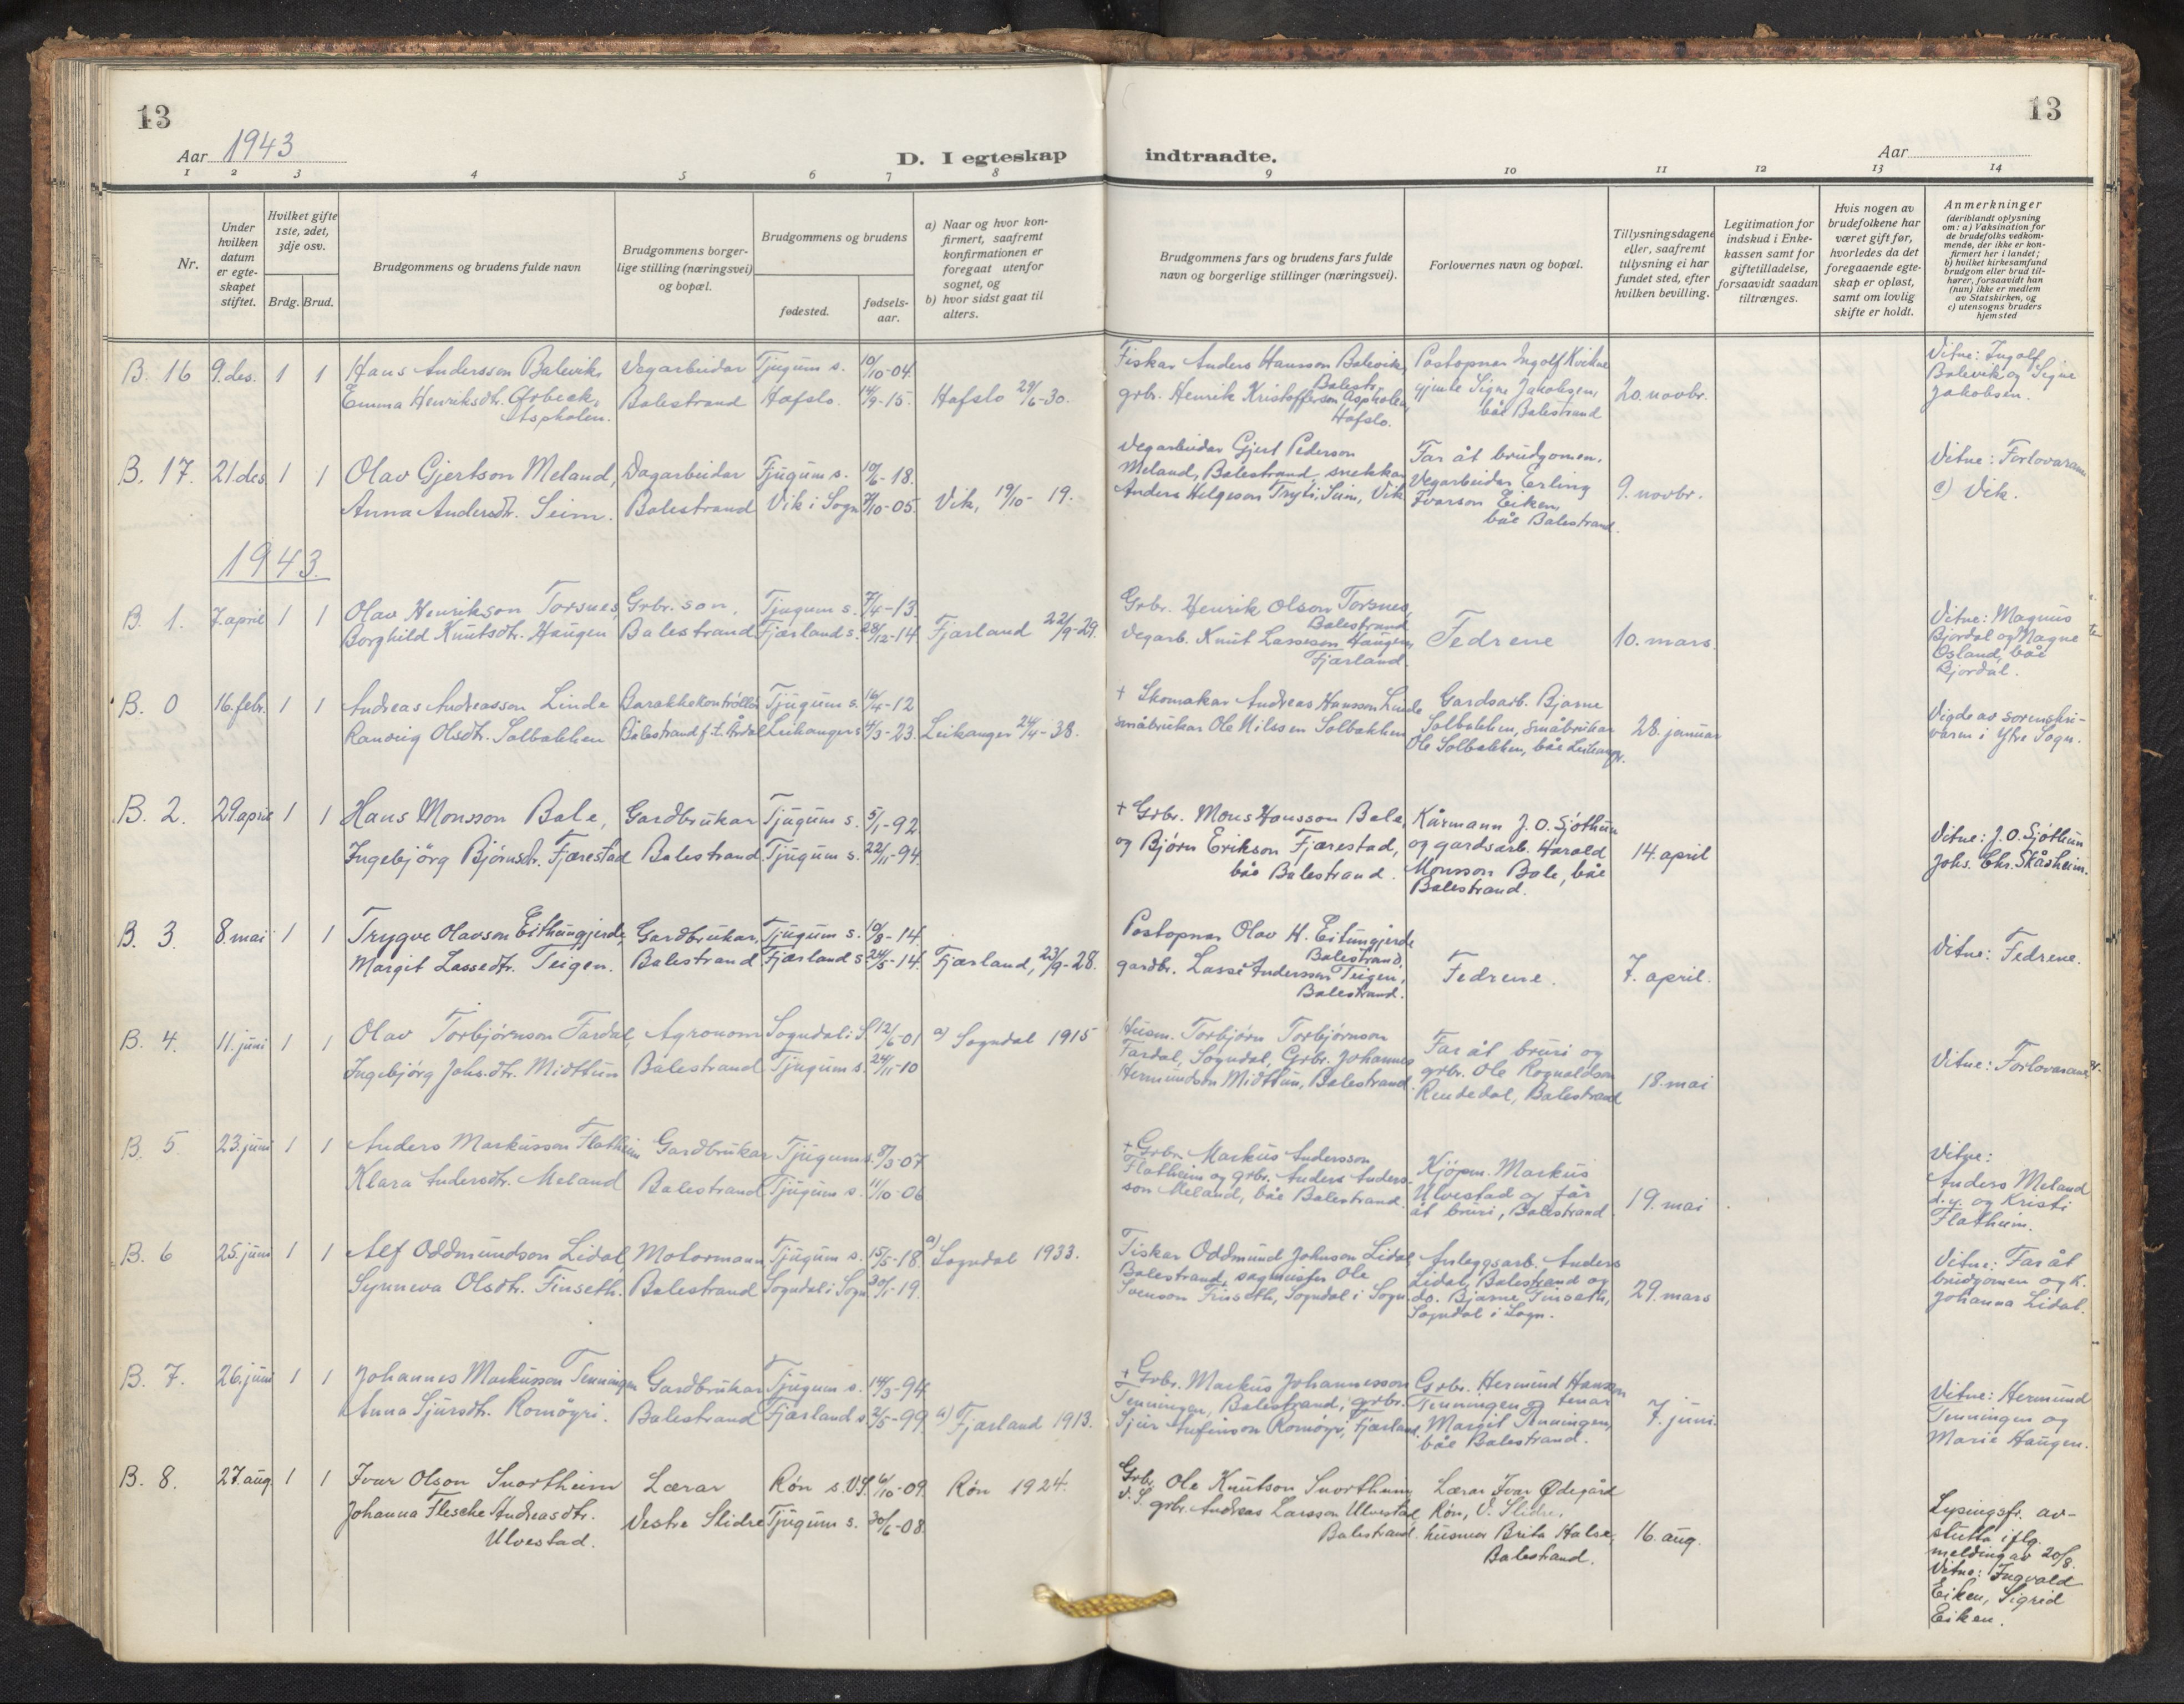 13
13
Aar 1943
D. I egteskap
indtraadte.
Aar
1 2 3 4 5 6 7 8 9 10 11 12 13 14
Nr.
Under hvilken datum er egte-skapet stiftet.
Hvilket gifte 1ste, 2det, 3dje osv.
Brdg. Brud.
Brudgommens og brudens fulde navn
Brudgommens borger-lige stilling (næringsvei) og bopæl.
Brudgommens og brudens
fødested.
fødsels-aar.
a) Naar og hvor kon-firmert, saafremt konfirmationen er foregaat utenfor sognet, og
b) hvor sidst gaat til alters.
Brudgommens fars og brudens fars fulde navn og borgerlige stillinger (næringsvei).
Forlovernes navn og bopæl.
Tillysningsdagene eller, saafremt tillysning ei har fundet sted, efter hvilken bevilling.
Legitimation for indskud i Enke-kassen samt for giftetilladelse, forsaavidt saadan tiltrænges.
Hvis nogen av brudefolkene har været gift før, hvorledes da det foregaaende egte-skap er opløst, samt om lovlig skifte er holdt.
Anmerkninger (deriblandt oplysning om: a) Vaksination for de brudefolks vedkom-mende, der ikke er kon-firmert her i landet; b) hvilket kirkesamfund brudgom eller brud til-hører, forsaavidt han (hun) ikke er medlem av Statskirken, og c) utensogns bruders hjemsted
B. 16 9. des. 1 1
Hans Andersson Balevik,
Emma Henriksdt. Ørbeck, Aspholen.
Vegarbeidar
Balestrand
Tjugum s. 10/10-04.
Hafslo. 14/9-15.
Hafslo 29/6-30.
Fiskar Anders Hansson Balevik, Balestr.
grbr. Henrik Kristofferson Aspholen, Hafslo.
Postopnar Ingolf Kvikne
gjente Signe Jakobsen,
båe Balestrand
20. novbr.
Vitne: Ingolf
Balevik og Signe
Jakobsen.
B. 17. 21. des 1 1
Olav Gjertson Meland,
Anna Andersdt. Seim.
Dagarbeidar
Balestrand
Tjugum s. 10/6-18.
Vik i Sogn 7/10-05.
Vik, 19/10-19.
Vegarbeidar Gjert Pederson
Meland, Balestrand, snekkar
Anders Helgeson Tryti, Seim, Vik
Far åt brudgomen.
Vegarbeidar Erling
Ivarson Eiken,
båe Balestrand.
9. novbr.
Vitne: Forlovarane
c) Vik.
1943.
B. 1. 7. april 1 1
Olav Henrikson Torsnes,
Borghild Knutsdt. Haugen
Grbr. son,
Balestrand
Tjugum s. 7/4-13
Fjærland s. 28/12-14
Fjærland 22/9-29.
Grbr. Henrik Olson Torsnes,
Balestrand
Vegarb. Knut Lasseson Haugen,
Fjærland.
Fedrene
10. mars.
Vitne: Magnus
Bjordal og Magne
Osland, båe
Bjordal.
B. 0 16. febr. 1 1
Andreas Andreasson Linde
Ranveig Olsdt. Solbakken
Barakkekontrollør
Balestrand f.t. Årdal
Tjugum s. 16/4-12
Leikanger s 4/3-23.
Leikanger 24/4-38.
+ Skomakar Andreas Hansson Linde
småbrukar Ole Nilssen Solbakken
Gardsarb. Bjarne
Solbakken, småbrukar
Ole Solbakken, båe Leikanger.
28. januar
Vigde av sorenskri-
varen i Ytre Sogn.
B. 2. 29 april 1 1
Hans Monsson Bale,
Ingebjörg Bjørnsdt. Fjærestad
Gardbrukar
Balestrand
Tjugum s. 5/1-92
Tjugum s. 22/11-94.
+ Grbr. Mons Hansson Bale,
og Bjørn Erikson Fjærestad,
båe Balestrand.
Kårmann J. O. Sjøthun
og gardsarb. Harald
Monsson Bale, båe
Balestrand.
14. april
Vitne: J. O. Sjøthun
Johs. Chr. Skåsheim.
B. 3. 8. mai 1 1
Trygve Olavson Eithungjerde,
Margit Lassedtr. Teigen.
Gardbrukar,
Balestrand
Tjugum s. 10/8-14.
Fjærland s 24/5-14.
Fjærland, 23/9-28.
Postopnar Olav H. Eitungjerde
Balestrand,
gardbr. Lasse Andersson Teigen,
Balestrand.
Fedrene.
7. april.
Vitne: Fedrene.
B. 4. 11. juni 1 1
Olav Torbjørnson Fardal,
Ingebjörg Johs.dt. Midttun
Agronom
Balestrand
Sogndal i S. 12/6-01
Tjugum s. 24/11-10
a) Sogndal 1915
Husm. Torbjørn Torbjørnson
Fardal, Sogndal, Grbr. Johannes
Hermundson Midttun, Balestrand.
Far åt bruri og
grbr. Ole Rognaldson
Rendedal, Balestrand
18. mai
Vitne: Forlovarane
B. 5. 23. juni 1 1
Anders Markusson Flatheim
Klara Andersdt. Meland
Gardbrukar
Balestrand
Tjugum s. 8/3-07
Tjugum s. 11/10-06
+ Grbr. Markus Andersson
Flatheim og grbr. Anders Anders-
son Meland, båe Balestrand.
Kjöpm. Markus
Ulvestad og far
åt bruri, Balestrand
19. mai
Vitne:
Anders Meland
d.y. og Kristi
Flatheim.
B. 6 25. juni 1 1
Alf Oddmundson Lidal,
Synneva Olsdt. Finseth.
Motormann
Balestrand
Tjugum s. 15/5-18.
Sogndal i Sogn 30/1-19.
a) Sogndal 1933.
Fiskar Oddmund Johnson Lidal
Balestrand, sagmester Ole
Svenson Finseth, Sogndal i Sogn.
Anleggsarb. Anders
Lidal, Balestrand og
do. Bjarne Finseth,
Sogndal i Sogn.
29. mars
Vitne: Far åt
brudgomen og K.
Johanna Lidal.
B. 7. 26. juni 1 1
Johannes Markusson Tenningen
Anna Sjursdt. Romöyri.
Gardbrukar
Balestrand
Tjugum s. 14/3-94
Fjærland s. 2/5-99
a) Fjærland 1913.
+ Grbr. Markus Johannesson
Tenningen, Balestrand, grbr.
Sjur Anfinson Romøyr, Fjærland.
Grbr. Hermund Hansson
Tenningen og tenar
Margit Tenningen,
båe Balestrand.
7. juni.
Vitne: Hermund
Tenningen og
Marie Haugen.
B. 8. 27. aug. 1 1
Ivar Olson Snortheim
Johanna Flesche Andreasdtr.
Ulvestad.
Lærar
Vestre Slidre
Røn s. V.S. 6/10-09.
Tjugum s. 30/6-08.
Røn 1924.
Grbr. Ole Knutson Snortheim,
V. S. grbr. Andreas Larsson Ulvestad,
Balestrand.
Lærar Ivar Ødegård
Røn, V. Slidre,
husmor Brita Halse,
Balestrand.
16. aug.
Lysingsfr. av-
slutta iflg.
melding av 20/8.
Vitne: Ingvald
Eiken, Sigrid
Eiken.